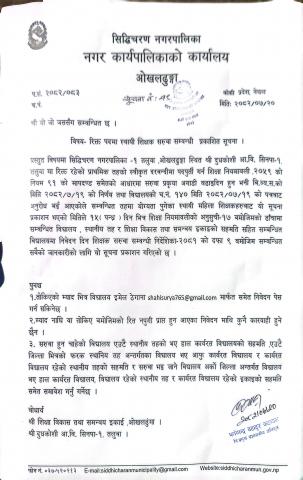 सिद्धिचरण नगरपालिका
नगर कार्यपालिकाको कार्यालय
ओखलढुङ्गा
प.सं. २०८२/०८३
कोशी प्रदेश, नेपाल
च.नं.
मिति: २०८२/०७/२०
श्री यो जो जससँग सम्बन्धित छ ।
विषय:- रिक्त पदमा स्थायी शिक्षक सरुवा सम्बन्धी प्रकाशित सूचना ।
प्रस्तुत विषयमा सिद्धिचरण नगरपालिका -१ तलुवा, ओखलढुङ्गा स्थित श्री दुधकोशी आ.वि. सिनपा-१,
तलुवा मा रिक्त रहेको प्राथमिक तहको स्वीकृत दरवन्दीमा पदपूर्ती गर्न शिक्षा नियमावली,२०५९ को
नियम ९१ को मापदण्ड समेतको आधारमा सरुवा प्रकृया अगाडी बढाइदिन हुन भनी वि.व्य.स.को
मिति २०८२/०७/१९ को निर्णय तथा विद्यालयको च.नं. १४० मिति २०८२/०७/१९ को पत्रबाट
अनुरोध भई आएकोले सम्बन्धित तहमा योग्यता पुगेका स्थायी महिला शिक्षकहरुबाट यो सूचना
प्रकाशन भएको मितिले १५( पन्ध्र ) दिन भित्र शिक्षा नियमावलीको अनुसुची-१७ बमोजिमको ढाँचामा
सम्बन्धित विद्यालय , स्थानीय तह र शिक्षा विकास तथा समन्वय इकाइको सहमति सहित सम्बन्धित
विद्यालयमा निवेदन दिन शिक्षक सरुवा सम्बन्धी निर्देशिका-२०८१ को दफा ९ बमोजिम सम्बन्धित
सबैको जानकारीको लागि यो सूचना प्रकाशन गरिएको छ ।
पुनश्च
१.तोकिएको म्याद भित्र विद्यालय इमेल ठेगाना shahisurya765@gmail.com मार्फत समेत निवेदन पेस
गर्न सकिनेछ ।
२.म्याद नाघि वा तोकिए बमोजिमको रित नपुगी प्राप्त हुन आएका निवेदन माथि कुनै कारवाही हुने
छैन ।
३. सरुवा हुन चाहेको विद्यालय एउटै स्थानीय तहको भए हाल कार्यरत विद्यालयको सहमति ,एउटै
जिल्ला भित्रको फरक स्थानिय तह अन्तर्गतका विद्यालय भए आफु कार्यरत विद्यालय र कार्यरत
विद्यालय रहेको स्थानीय तहको सहमति र सरुवा भइ जाने विद्यालय अर्को जिल्ला अन्तर्गत विद्यालय
भए हाल कार्यरत विद्यालय, विद्यालय रहेको स्थानीय तह र कार्यरत विद्यालय रहेको इकाइको सहमति
समेत समावेश गर्नु पर्नेछ ।
बोधार्थ
श्री शिक्षा विकास तथा समन्वय इकाई ,ओखलढुंगा
श्री दुधकोशी आ.वि. सिनपा-१, तलुवा ।
फोन नं. ०३७५२०११३
E-mail:siddhicharanmunicipality@gmail.com
Website:siddhicharanmun.gov.np